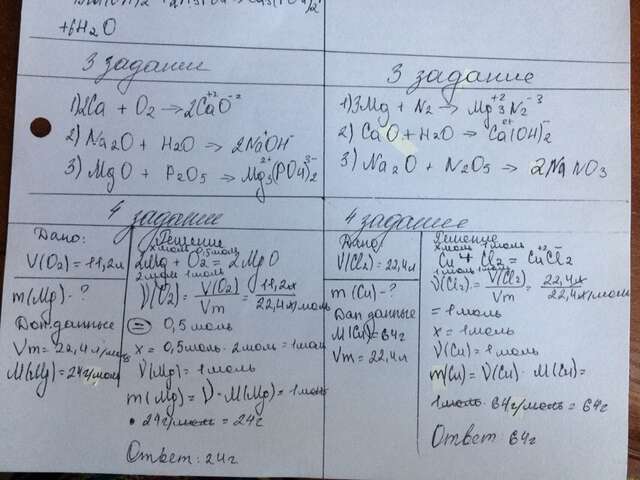 +6H₂O
3 задание
1) 2Ca + O₂ → 2Ca⁺²O⁻²
2) Na₂O + H₂O → 2Na⁺OH⁻
3) MgO + P₂O₅ → Mg₃²⁺(PO₄)₂³⁻
3 задание
1) 3Mg + N₂ → Mg₃⁺²N₂⁻³
2) CaO + H₂O → Ca²⁺(OH)₂⁻
3) Na₂O + N₂O₅ → 2NaNO₃
4 задание
Дано:
V(O₂) = 11,2л
m(Mg) - ?
Доп данные
Vm = 22,4 л/моль
M(Mg) = 24г/моль
Решение
x моль 0,5моль
2Mg + O₂ = 2MgO
2 моль 1 моль
ν(O₂) = V(O₂)/Vm = 11,2л/22,4л/моль
= 0,5 моль
x = 0,5моль · 2моль = 1моль
ν(Mg) = 1 моль
m(Mg) = ν · M(Mg) = 1моль
· 24г/моль = 24г
Ответ: 24г
4 задание
Дано:
V(Cl₂) = 22,4л
m(Cu) - ?
Доп данные
M(Cu) = 64г
Vm = 22,4л
Решение
x моль 1 моль
Cu + Cl₂ = Cu⁺²Cl₂
1 моль 1 моль
ν(Cl₂) = V(Cl₂)/Vm = 22,4л/22,4л/моль
= 1 моль
x = 1 моль
ν(Cu) = 1 моль
m(Cu) = ν(Cu) · M(Cu) =
1моль · 64г/моль = 64г
Ответ: 64г